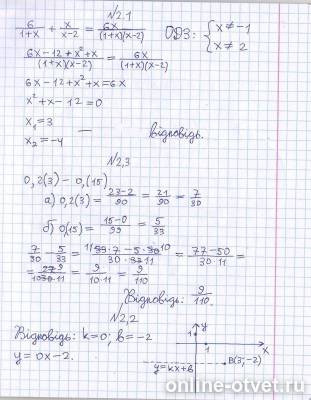 №2.1
6/(1+x) + x/(x-2) = 6x/((1+x)(x-2)) ОДЗ: { x ≠ -1
x ≠ 2
(6x-12+x²+x)/((1+x)(x-2)) = 6x/((1+x)(x-2))
6x-12+x²+x=6x
x²+x-12=0
x₁=3
x₂=-4 — Відповідь.
№2,3
0,2(3) - 0,(15)
а) 0,2(3) = (23-2)/90 = 21/90 = 7/30
б) 0,(15) = (15-0)/99 = 5/33
7/30 - 5/33 = (33·7-5·30)/(30·33) = (77-50)/(30·11) =
= 27/(30·11) = 9/(10·11) = 9/110
Відповідь: 9/110.
№2,2
Відповідь: k=0; b=-2
y=0x-2.
y
1
1
x
y=kx+b
B(3;-2)
online-otvet.ru